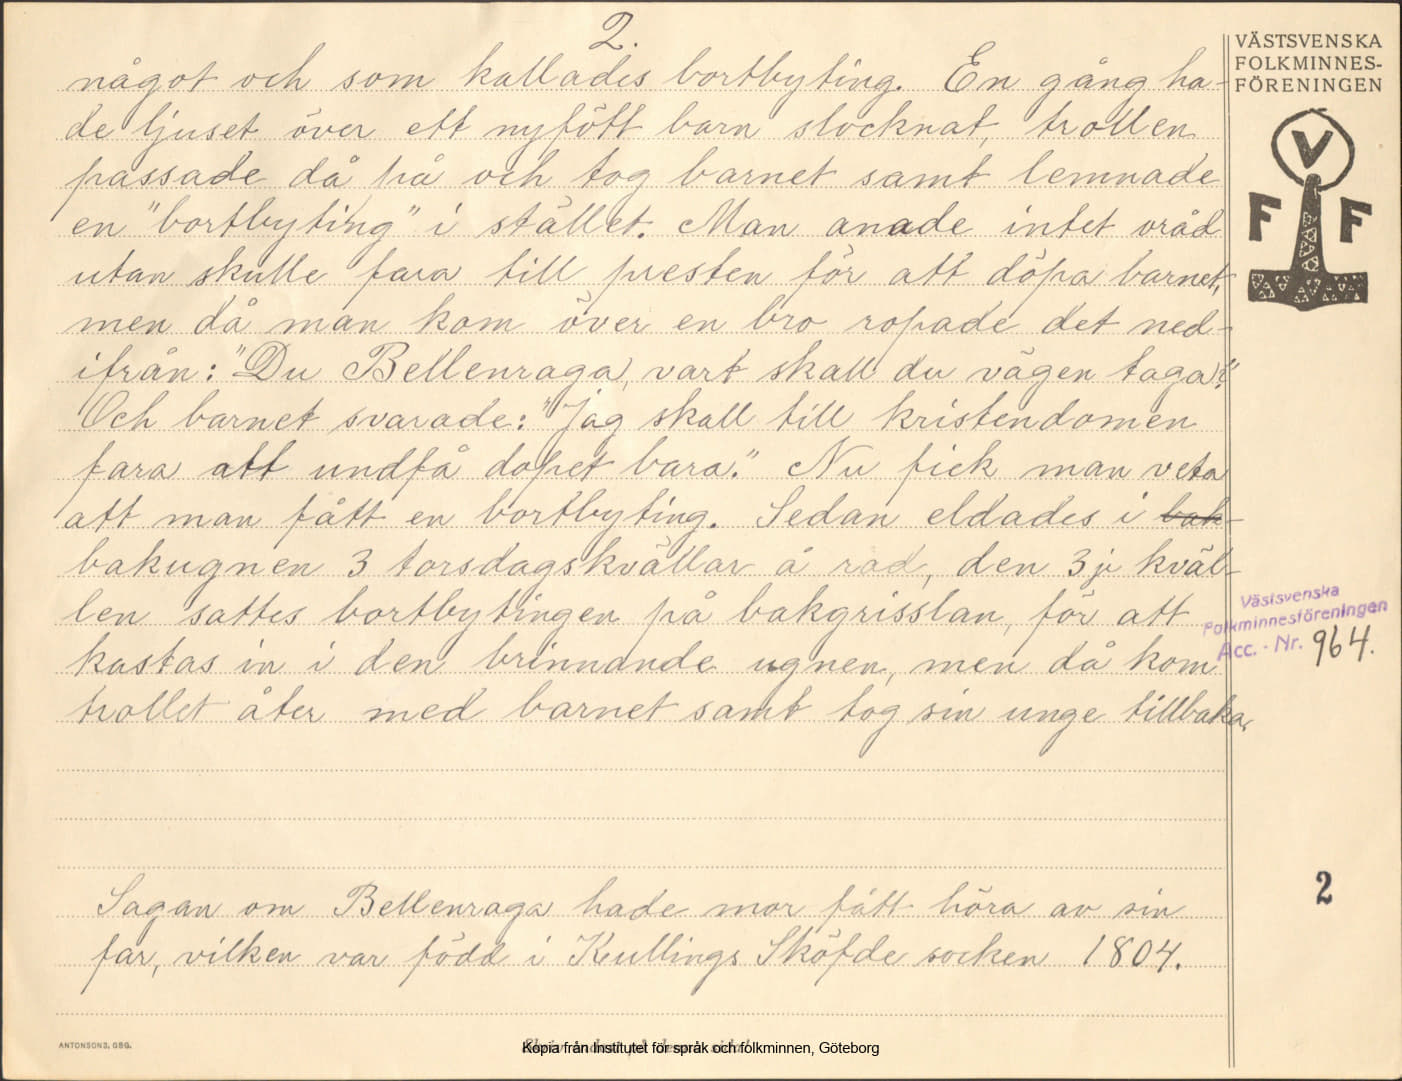 2.
något och som kallades bortbyting. En gång ha-
de ljuset över ett nyfött barn slocknat, trollen
passade då på och tog barnet samt lemnade
en "bortbyting" i stället. Man anade intet oråd
utan skulle fara till presten för att döpa barnet,
men då man kom över en bro ropade det ned-
ifrån: "Du Bellenraga, vart skall du vägen taga?"
Och barnet svarade: "Jag skall till kristendomen
fara att undfå dopet bara." Nu fick man veta
att man fått en bortbyting. Sedan eldades i bak-
bakugnen 3 torsdagskvällar å rad, den 3je kväl-
len sattes bortbytingen på bakgrisslan, för att
kastas in i den brinnande ugnen, men då kom
trollet åter med barnet samt tog sin unge tillbaka.
Sagan om Bellenraga hade mor fått höra av sin
far, vilken var född i Kullings Sköfde socken 1804.
VÄSTSVENSKA
FOLKMINNES-
FÖRENINGEN
V
F F
Västsvenska
Folkminnesföreningen
Acc. - Nr. 964.
2
ANTONSONS, GBG.
Kopia från Institutet för språk och folkminnen, Göteborg